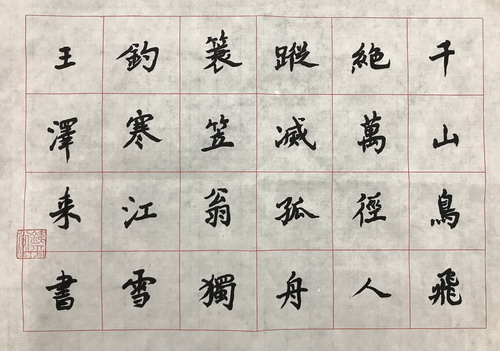 千山鳥飛
絕萬徑人
蹤滅孤舟
蓑笠翁獨
釣寒江雪
王澤来書